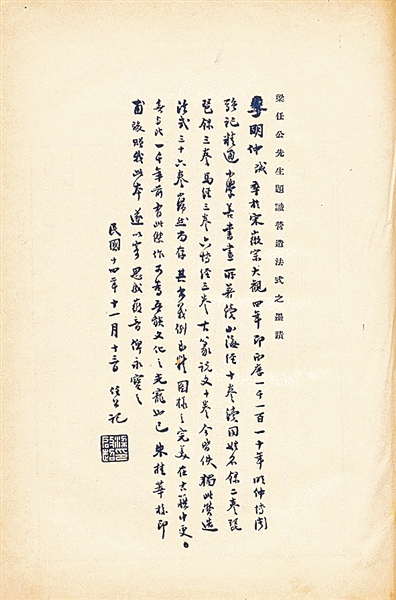 梁任公先生題識營造法式之墨蹟
李明仲誡卒於宋徽宗大觀四年即西曆一千一百一十年明仲博聞
強記精通小學善書畫所著續山海經十卷續同姓名錄二卷琵
琶錄三卷馬經三卷六博經三卷古篆說文十卷今皆佚獨此營造
法式三十六卷巋然尚存其書義例至精圖樣之完美在古籍中更
無與比一千年前有此傑作可為吾族文化之光寵也已朱桂莘校印
甫竣贈我此本遂以寄思成徽音俾永寶之
民國十四年十一月十三日 任公記